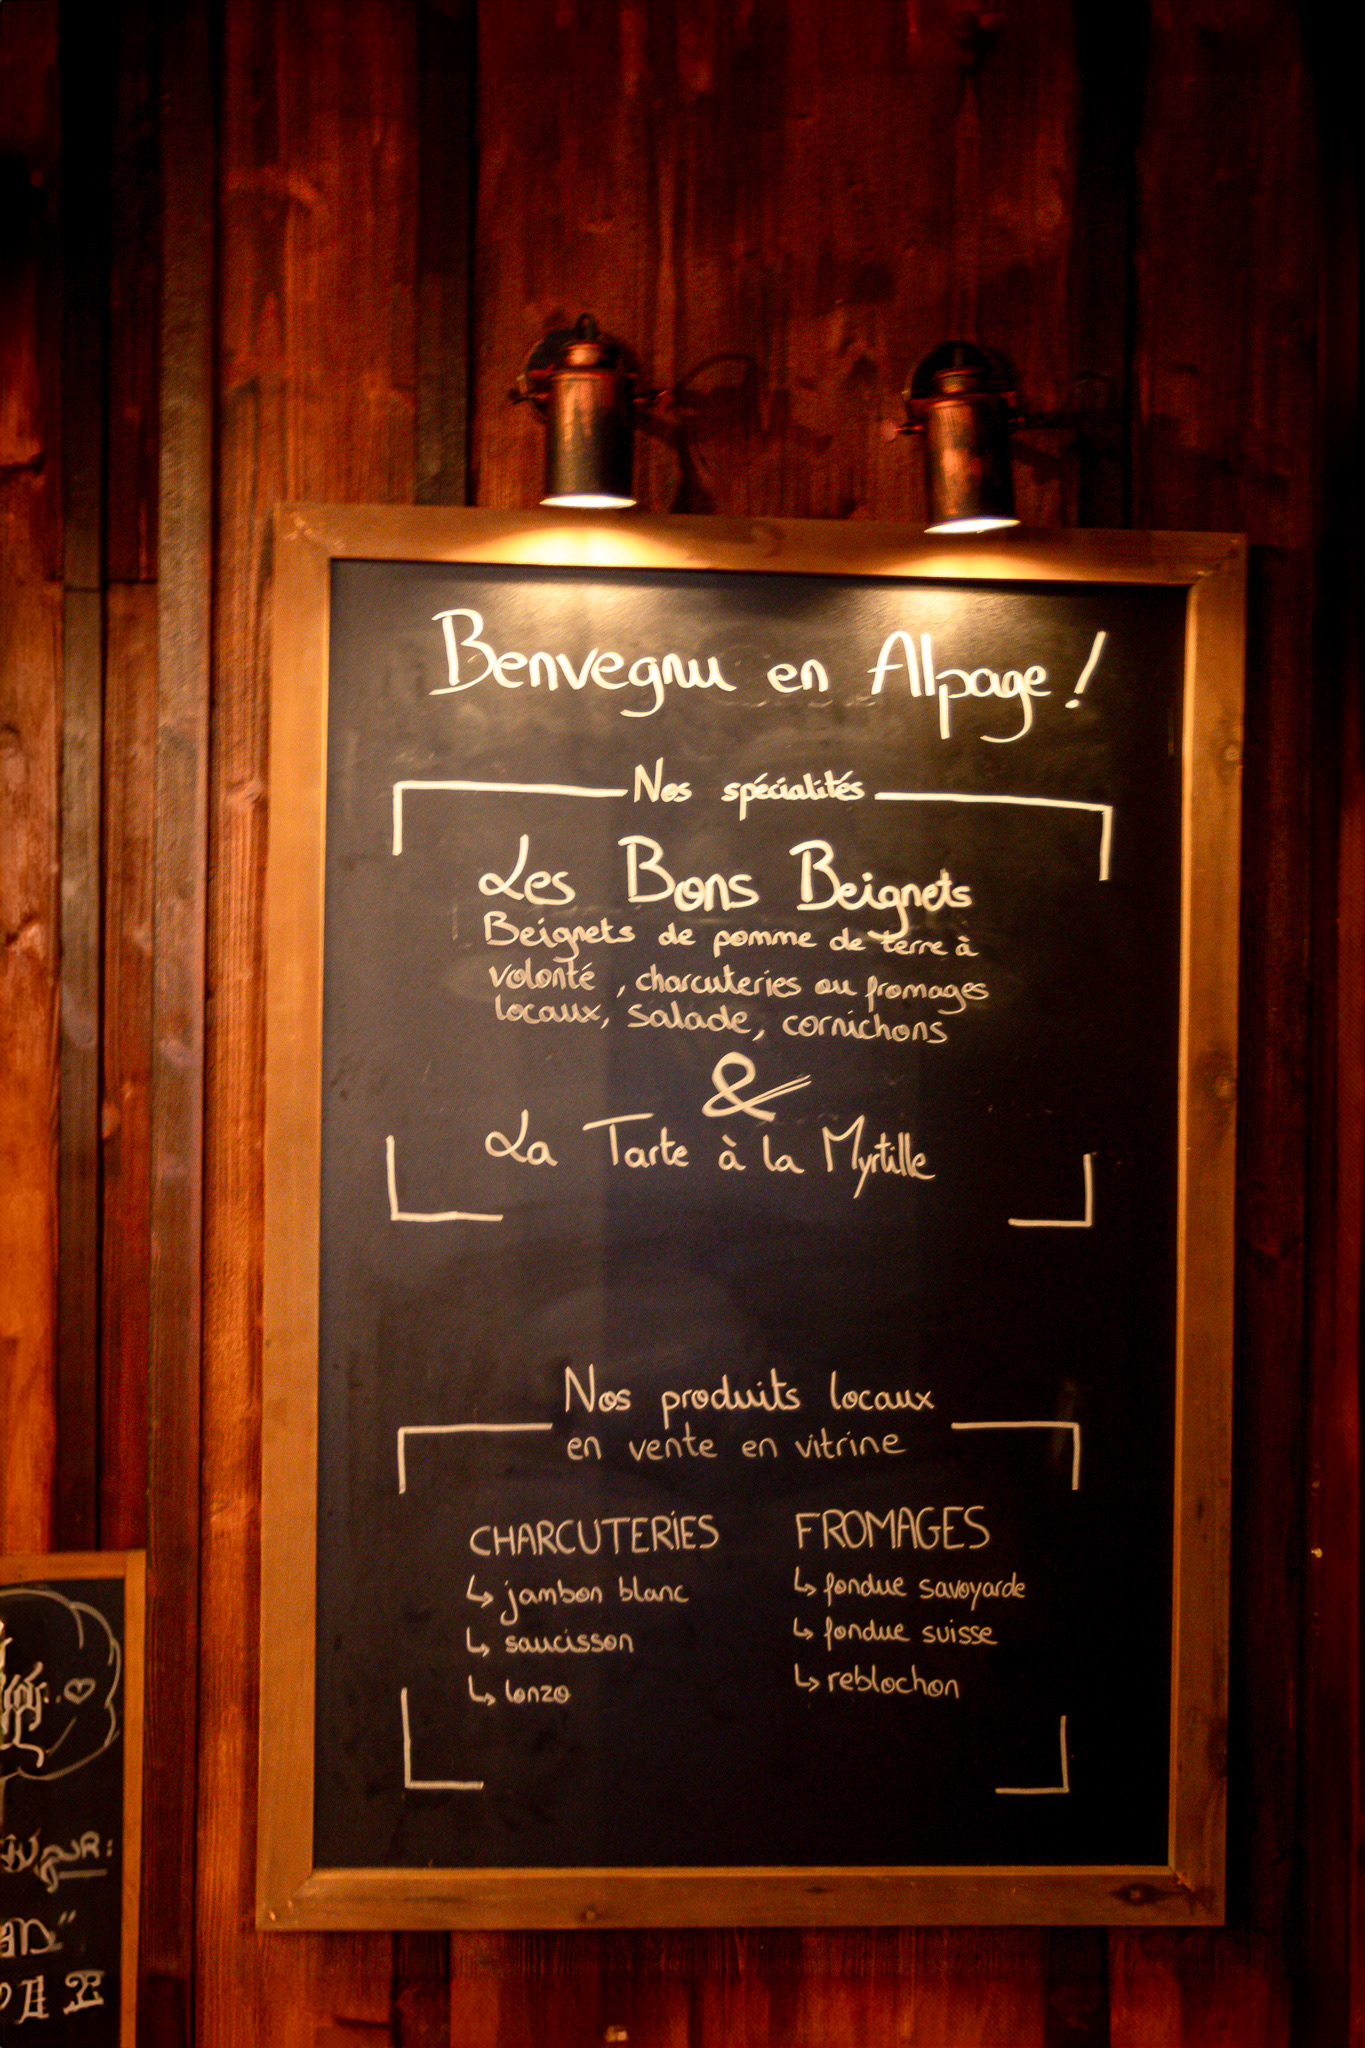 Benvegnu en Alpage !
Nos spécialités
Les Bons Beignets
Beignets de pomme de terre à
volonté, charcuteries ou fromages
locaux, salade, cornichons
&
La Tarte à la Myrtille
Nos produits locaux
en vente en vitrine
CHARCUTERIES
↳ jambon blanc
↳ saucisson
↳ lonzo
FROMAGES
↳ fondue savoyarde
↳ fondue suisse
↳ reblochon